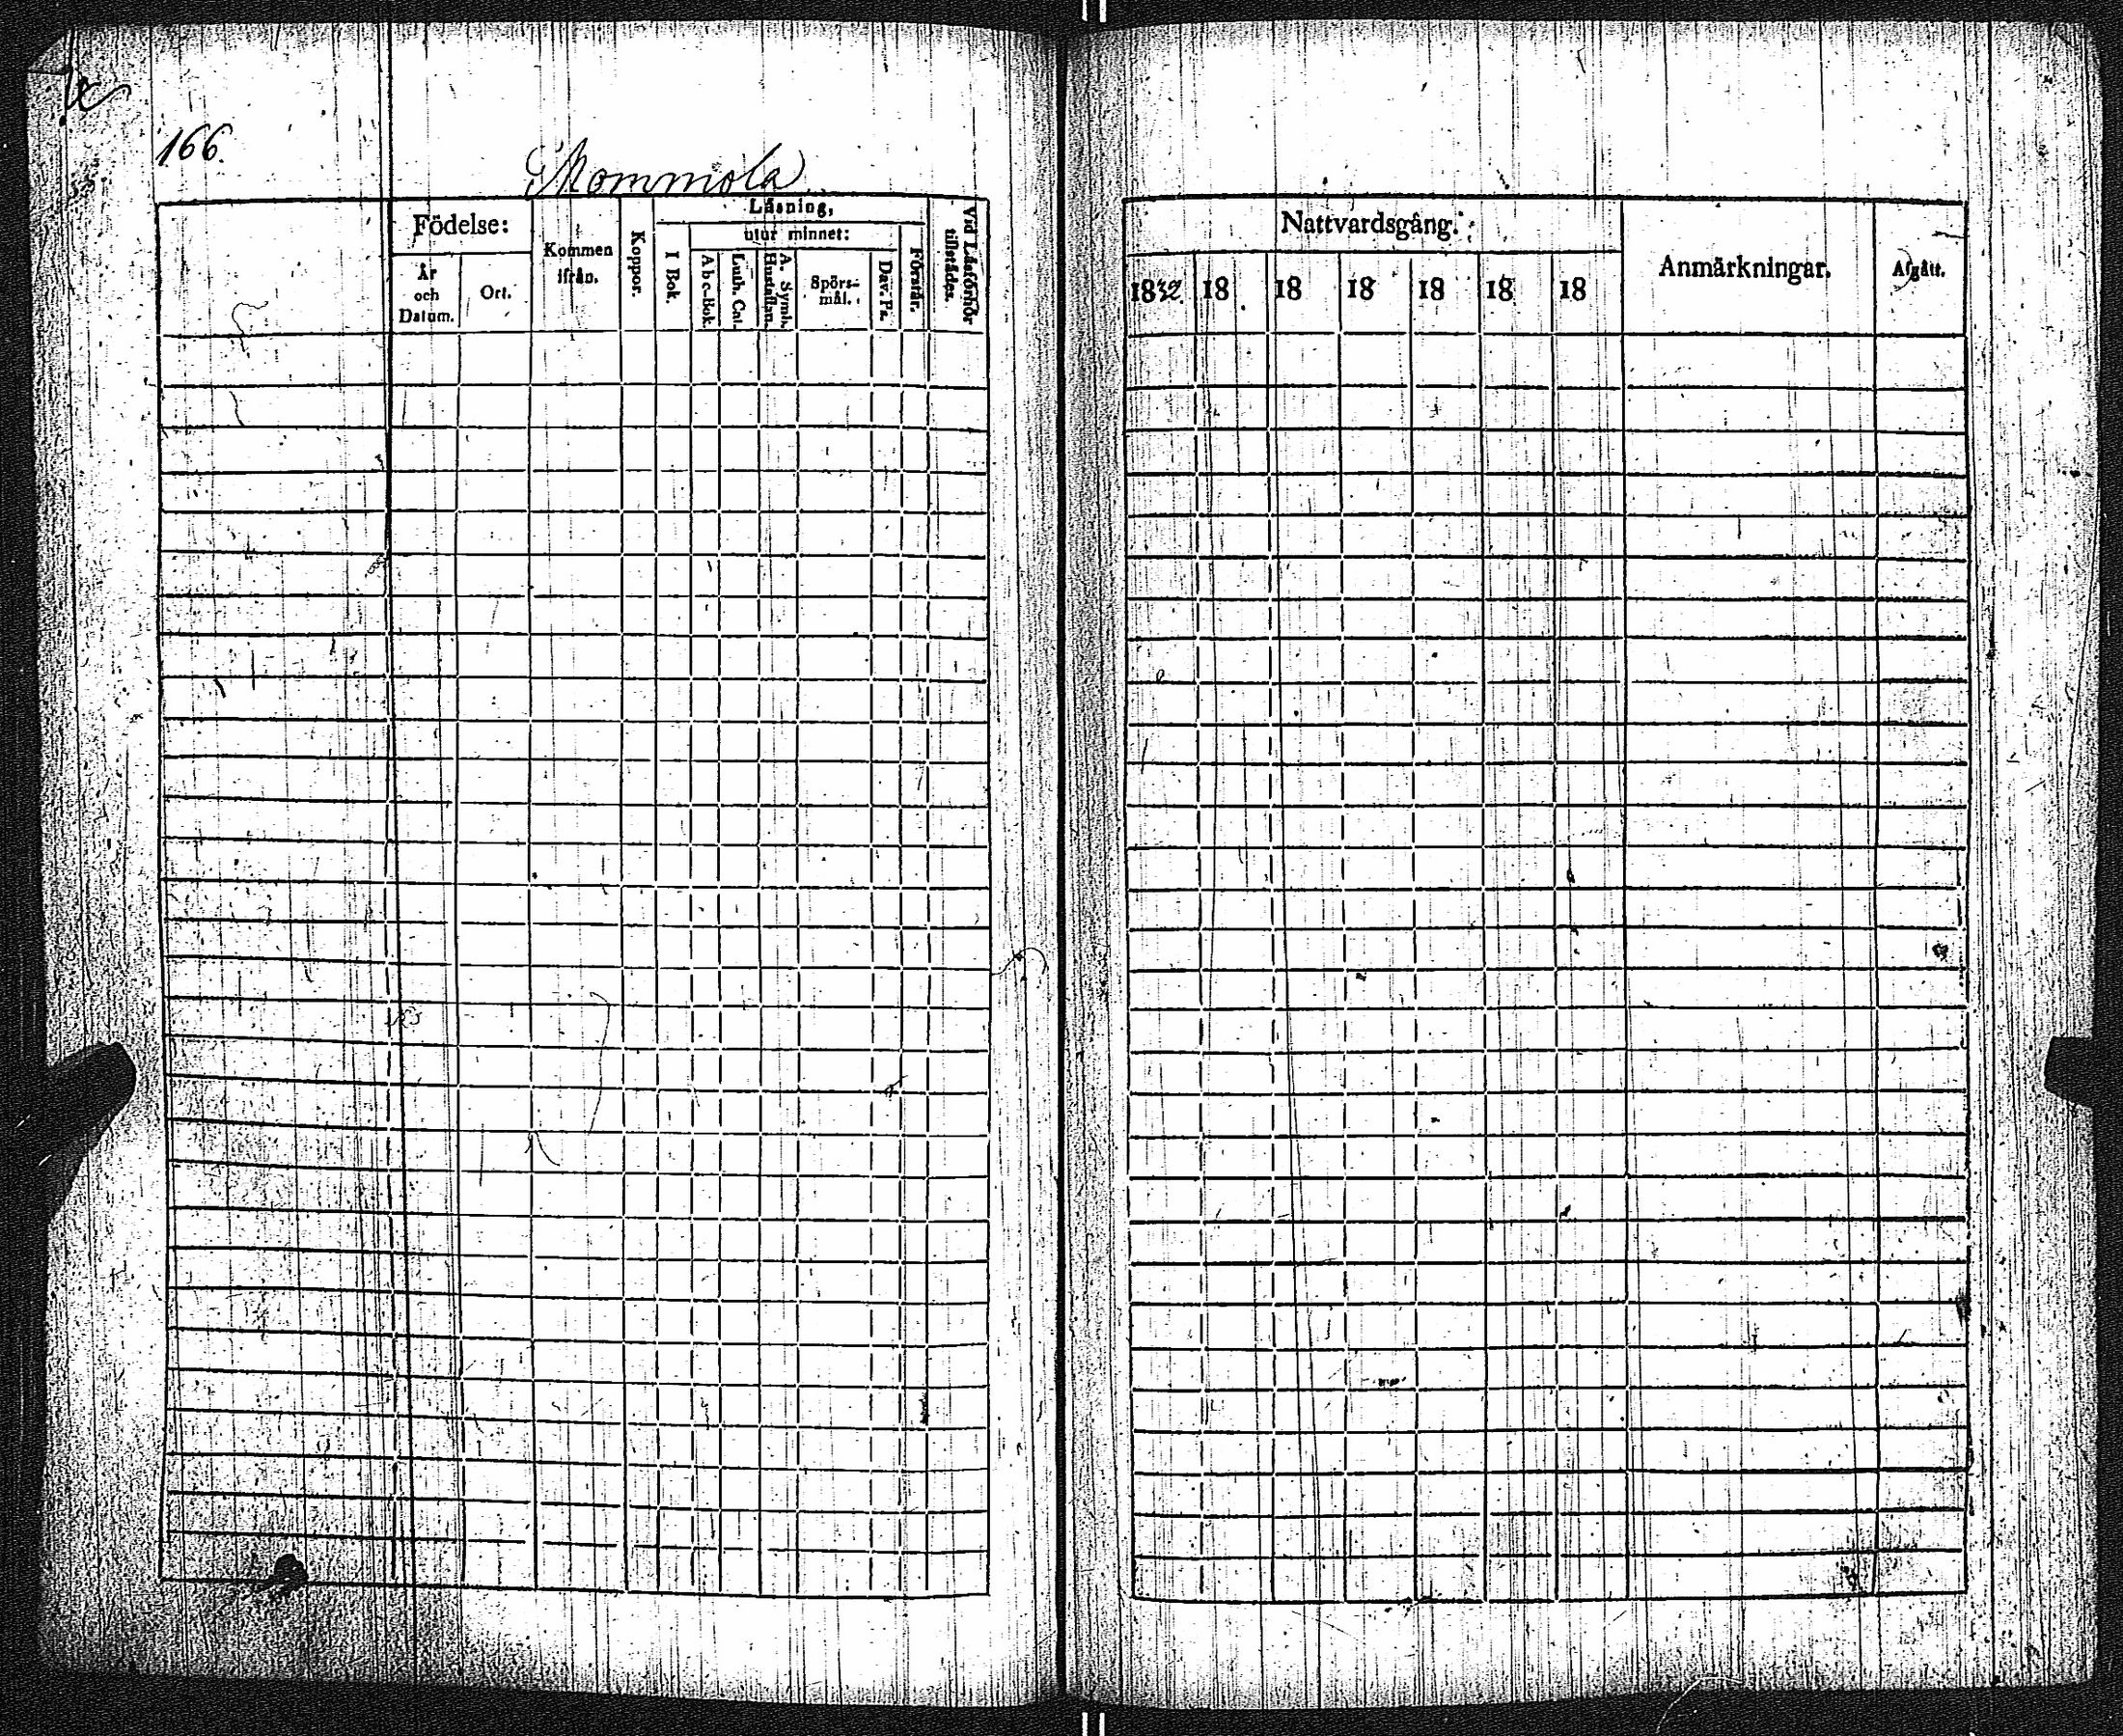 166.
Skommola
Födelse:
År och Datum.
Ort.
Kommen ifrån.
Koppor.
Läsning,
I Bok.
utur minnet:
Abc-Bok.
Luth. Cat.
Hustaflan.
A. Symb.
Spörs-
mål.
Dav. Ps.
Förstår.
Vid Läsförhör
tillstädes.
Nattvardsgång.
1832 18 18 18 18 18 18
Anmärkningar.
Afgått.